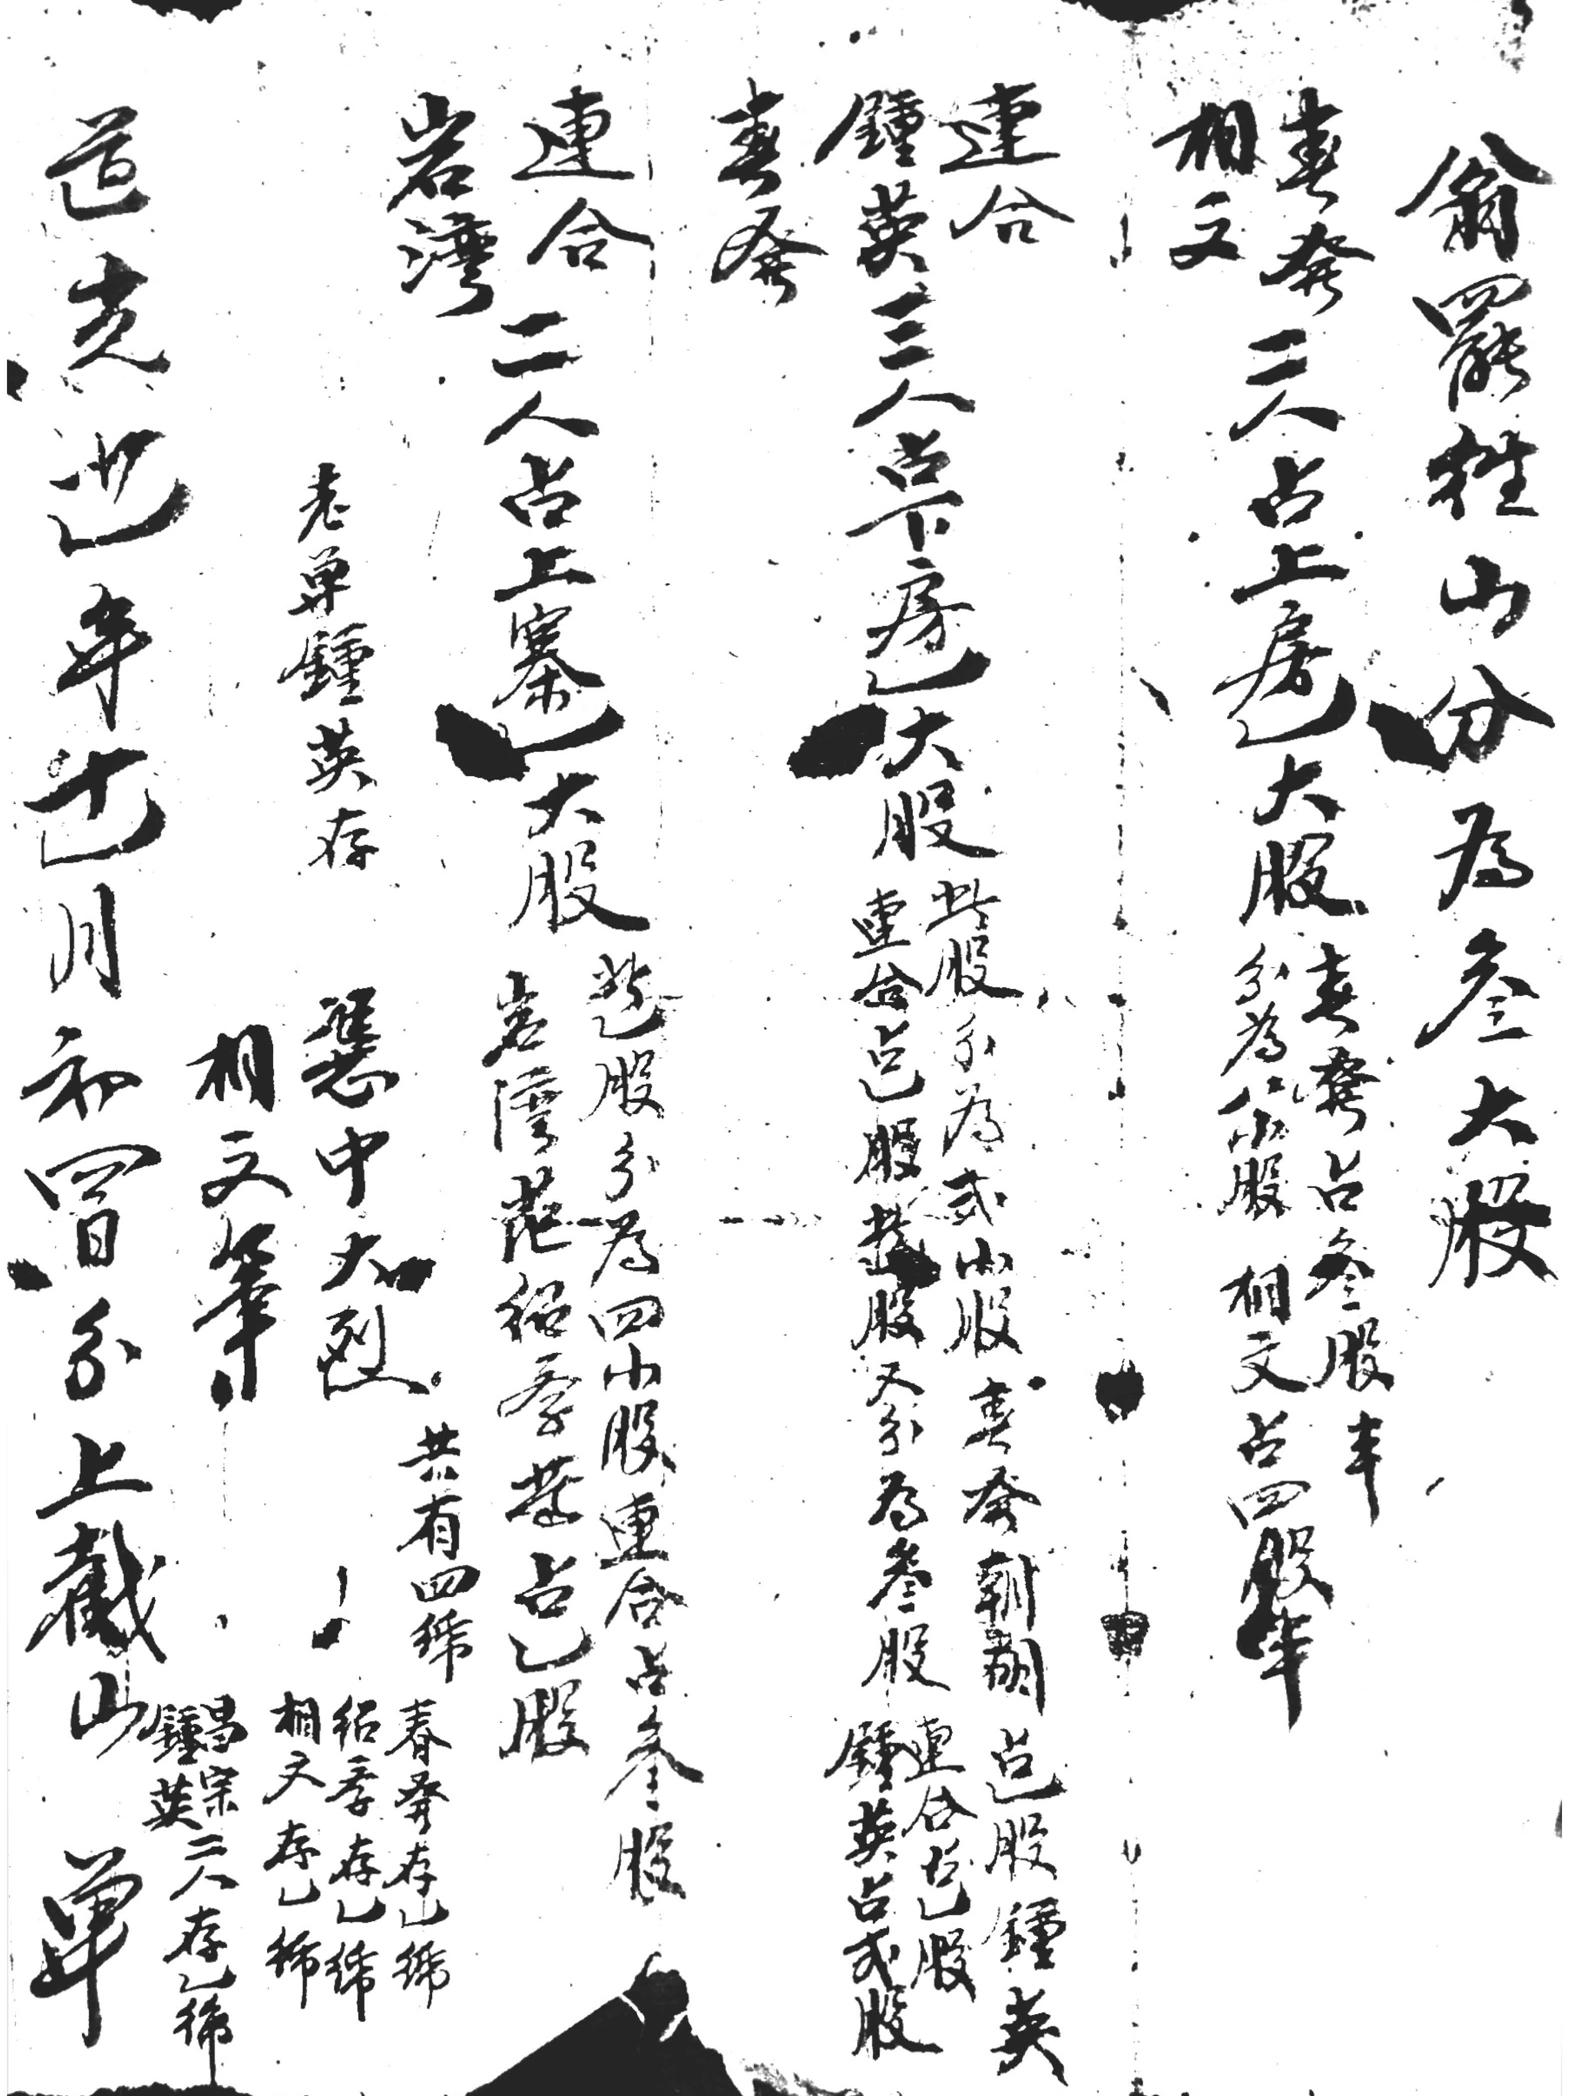 翁羅㭴山分為叁大股
春發
相文
二人占上房乙大股
春發占叁股半
分為八小股
相文占四股半
連合
鍾英三人占下房乙大股
春發
此股分為弍小股
春發朝朗占乙股鍾英
連合占乙股
此股又分為叁股
連合占乙股
鍾英占弍股
連合
岩灣
二人占上寨乙大股
此乙股分為四小股連合占叁股
岩灣范紹孝等占乙股
老單鍾英存
憑中大烈
相文筆
共有四紙
春發存乙紙
紹孝存乙紙
相文存乙紙
昌宗
鍾英二人存乙紙
道光廿乙年十乙月初四日分上截山單